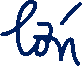 lớn